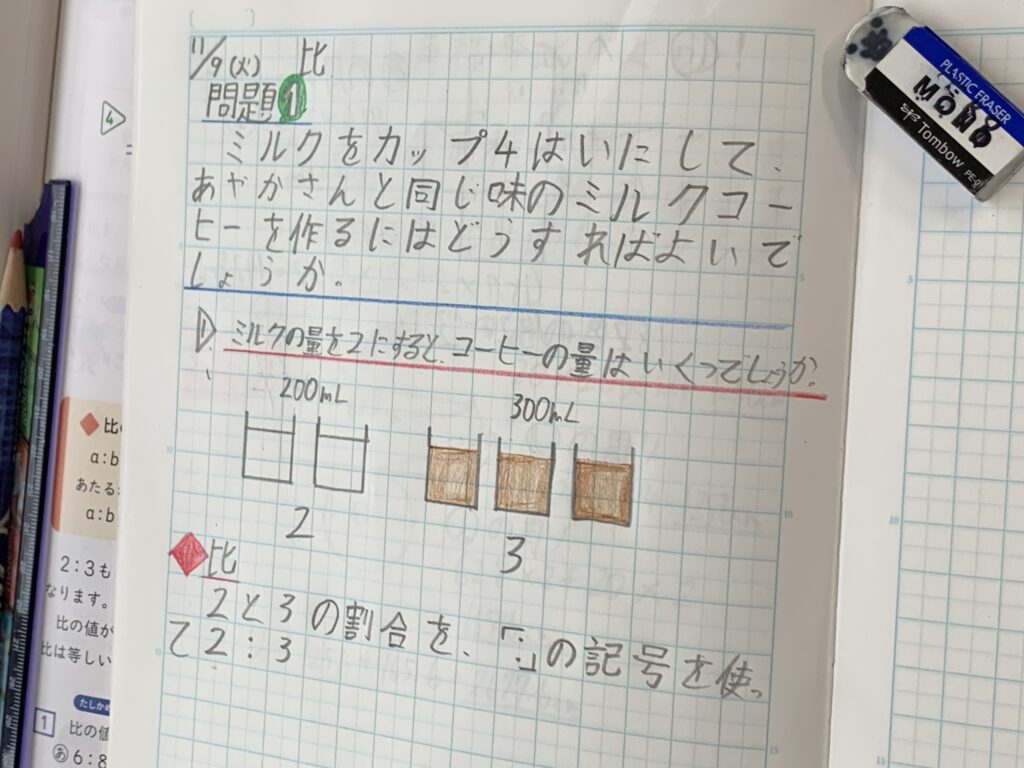 11/9(火) 比
問題1
ミルクをカップ4はいにして、
あやかさんと同じ味のミルクコー
ヒーを作るにはどうすればよいで
しょうか。
1 ミルクの量を2にすると、コーヒーの量はいくつでしょうか?
200mL
300mL
2
3
比
2と3の割合を、「:」の記号を使っ
て2:3
4
比の
a:b
あたる
a:b
2:3も
なります。
比の値が
比は等しい
たしかめ
1 比の値
あ 6:8
PLASTIC ERASER
MONO
Tombow
5
10
15
5
10
15